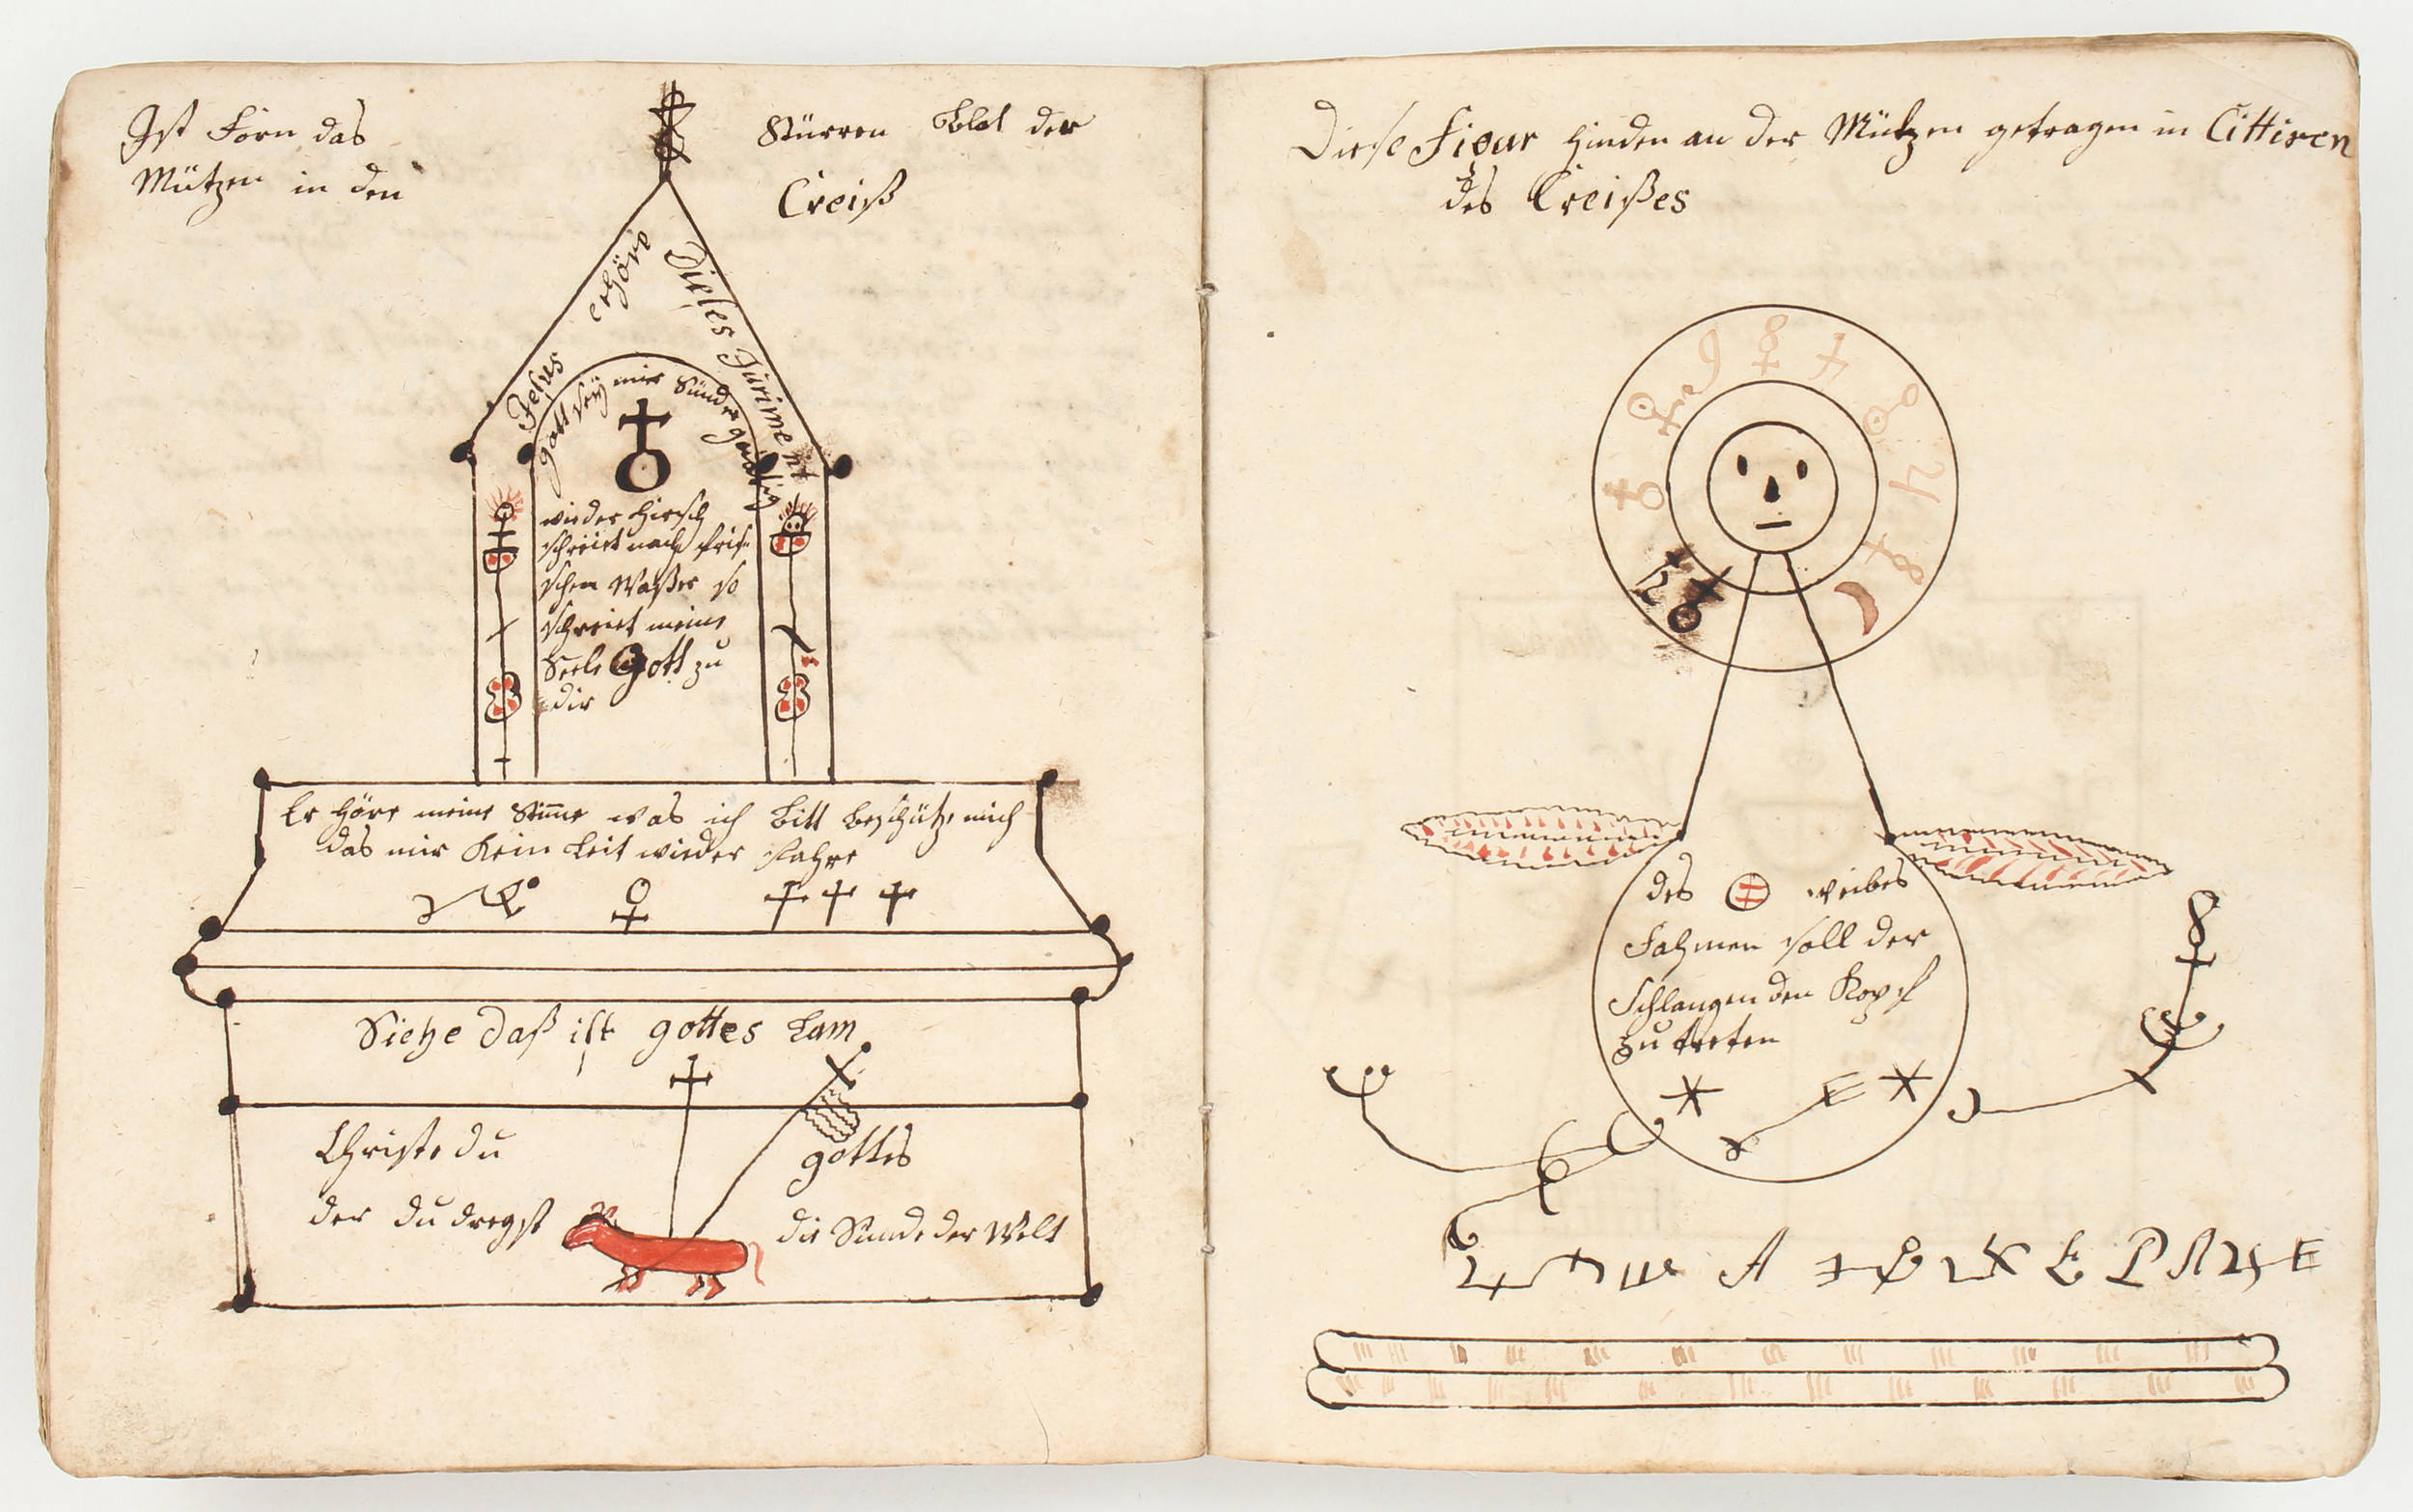 Ist Forn das Stürren Blat der
Mützen in den Creiß
Jesus erhöre Dieses Jüriment
gott seÿ mir Sünder gnädig
wie der Hirsch
schreiet nach fris-
schen Waßer so
schreiet meine
Seele Gott zu
dir
Er höre meine Stim̅e was ich bitt beschütze mich
das mir Kein Leit wieder fahre
Siehe daß ist gottes Lam
Christe du gottes
der du dregst die Sünde der Welt
Diese Figur hinden an der Mützen getragen in Cittiren
des Creißes
des weibes
Sahmen soll der
Schlangen den Kopf
zu treten